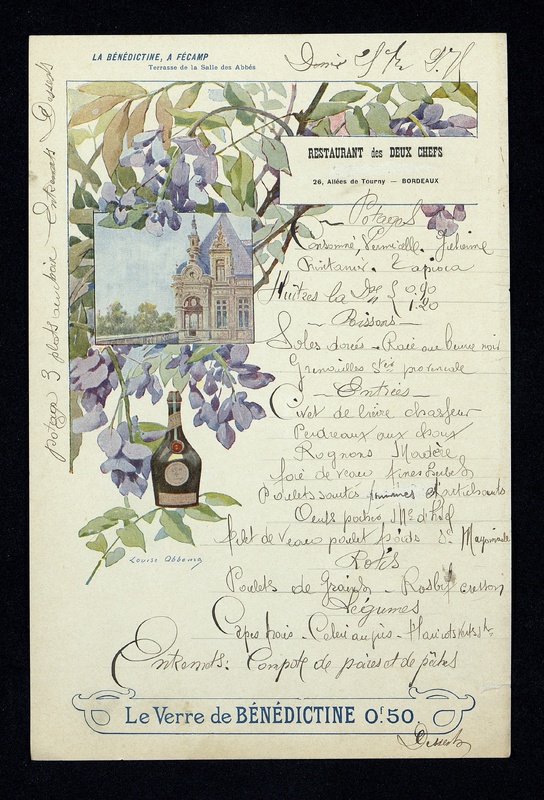 LA BÉNÉDICTINE, A FÉCAMP
Terrasse de la Salle des Abbés
RESTAURANT des DEUX CHEFS
26, Allées de Tourny — BORDEAUX
Potages
Consommé, Vermicelle. Julienne
Printanier. Tapioca
Huitres la Dze 0.90
1.20
Poissons
Soles dorées - Raie au beurre noir
Grenouilles Sté provencale
Entrées
Civet de lièvre chasseur
Perdreaux aux choux
Rognons Madère
foie de veau fines herbes
Poulets sautés
Oeufs pochés, Me d'hôtel
veau poulet froids Sce Mayonnaise
Rotis
Poulets de Grains - Rosbif cresson
Légumes
Cèpes frais - Céleri au jus - Haricots verts
Entremets: Compote de poires et de pêches
Potage 3 plats au choix Entremets Desserts
Louise Abbema
Le Verre de BÉNÉDICTINE 0f.50
Desserts